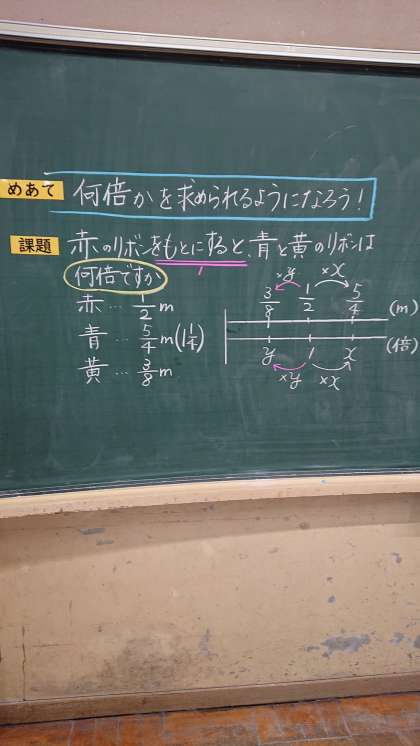 めあて 何倍かを求められるようになろう!
課題 赤のリボンをもとにすると、青と黄のリボンは
何倍ですか
赤…1/2m
青…5/4m(1 1/4)
黄…3/8m
×y ×x
3/8 1/2 5/4 (m)
y 1 x (倍)
×y ×x